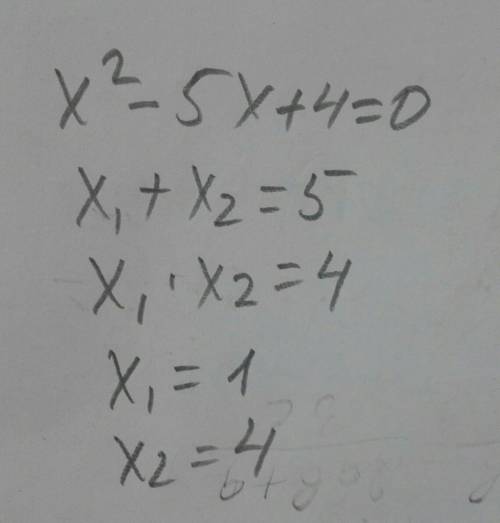 x² - 5x + 4 = 0
x₁ + x₂ = 5
x₁ · x₂ = 4
x₁ = 1
x₂ = 4